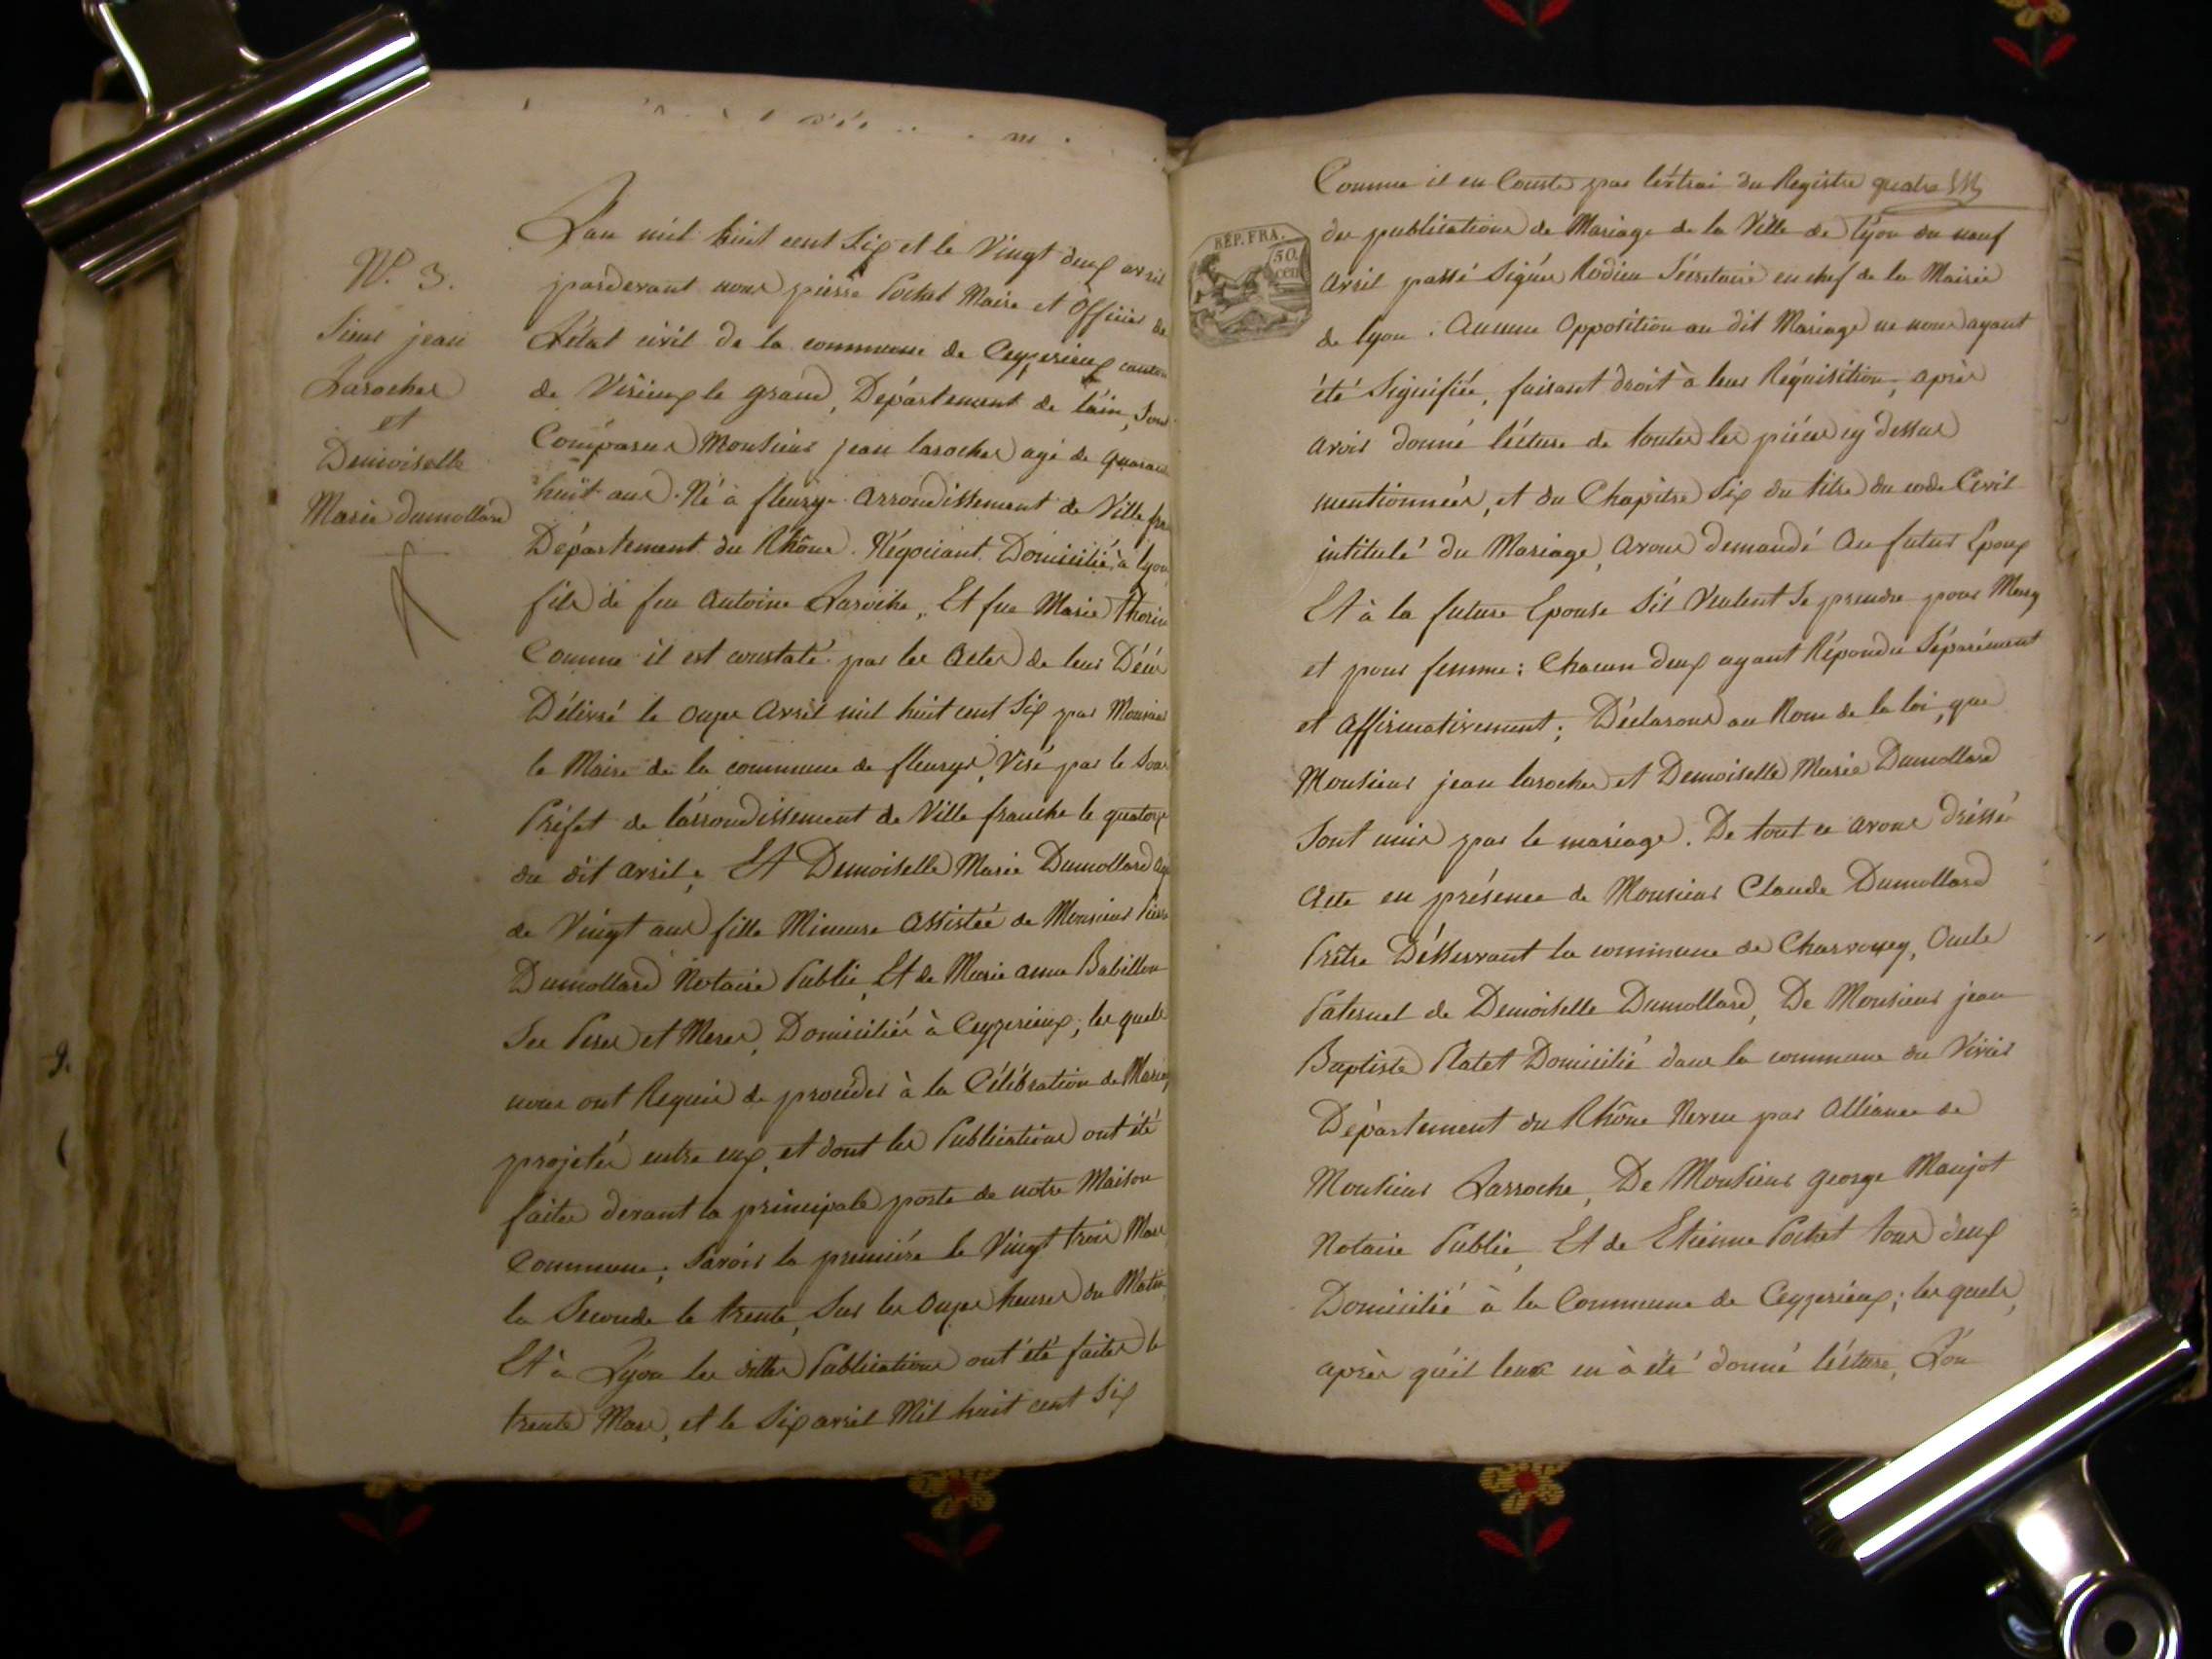 N.º 3.
Sieur jean
Laroche
et
Demoiselle
Marie dumollard
L'an mil huit cent Six et le Vingt deux avril
pardevant nous pierre Pochet Maire et Officier de
L'état civil de la commune de Ceyzerieux canton
de Virieux le grand, Département de l'ain, Sont
Comparus Monsieur jean laroche agé de quarante
huit ans. Né à fleurye arrondissement de Ville fra
Département du Rhône. Négociant Domicilié à lyon
fils de feu Antoine Laroche, Et fue Marie Thorin
Comme il est constaté par les actes de leur Décès
Délivré le onze Avril mil huit cent Six par Monsieur
le Maire de la commune de fleurye, Visé par le Sous
Préfet de l'arrondissement de Ville franche le quatorze
du dit avril; Et Demoiselle Marie Dumollard agé
de Vingt ans fille Mineure assistée de Monsieur Pierre
Dumollard Notaire Public, Et de Marie anne Babillon
Ses Peres et Meres, Domiciliés à Ceyzerieux; les quels
nous ont Requis de procéder à la Célébration de Mariage
projetés entre eux, et dont les Publications ont été
faites devant la principale porte de notre Maison
Commune; Savoir la première le Vingt trois Mars
la Seconde le trente, Sur les onzes heures du Matin
Et à Lyon les dittes Publications ont été faites le
trente Mars, et le Six avril Mil huit cent Six
Comme il en Conste par l'extrai du Registre quatre
RÉP. FRA.
50
cen
des publications de Mariage de la Ville de lyon du neuf
Avril passé Signés Rodieu Sécretaire en chef de la Mairie
de lyon. Aucune Opposition au dit Mariage ne nous ayant
été Signifiée, faisant droit à leur Réquisition, après
avoir donné lécture de toutes les piéces cy dessus
mentionnées, et du Chapitre Six du titre du code Civil
intitulé du Mariage, avons demandé Au futur Epoux
Et à la future Epouse S'il Veulent Se prendre pour Mary
et pour femme: Chacun deux ayant Répondu Séparément
et Affirmativement; Déclarons au Nom de la loi, que
Monsieur jean laroche et Demoiselle Marie Dumollard
Sont unis par le mariage. De tout ce avons dréssé
Acte en présence de Monsieur Claude Dumollard
Prêtre Désservant la commune de Charvoney, Oncle
Paternel de Demoiselle Dumollard, De Monsieur jean
Baptiste Platet Domicilié dans la commune du Vivier
Département du Rhône Neveu par Alliance de
Monsieur Larroche, De Monsieur george Maujot
Notaire Public, Et de Etienne Pochet tous deux
Domicilié à la Commune de Ceyzerieux; les quels,
après qu'il leur en à été donné lécture, L'on